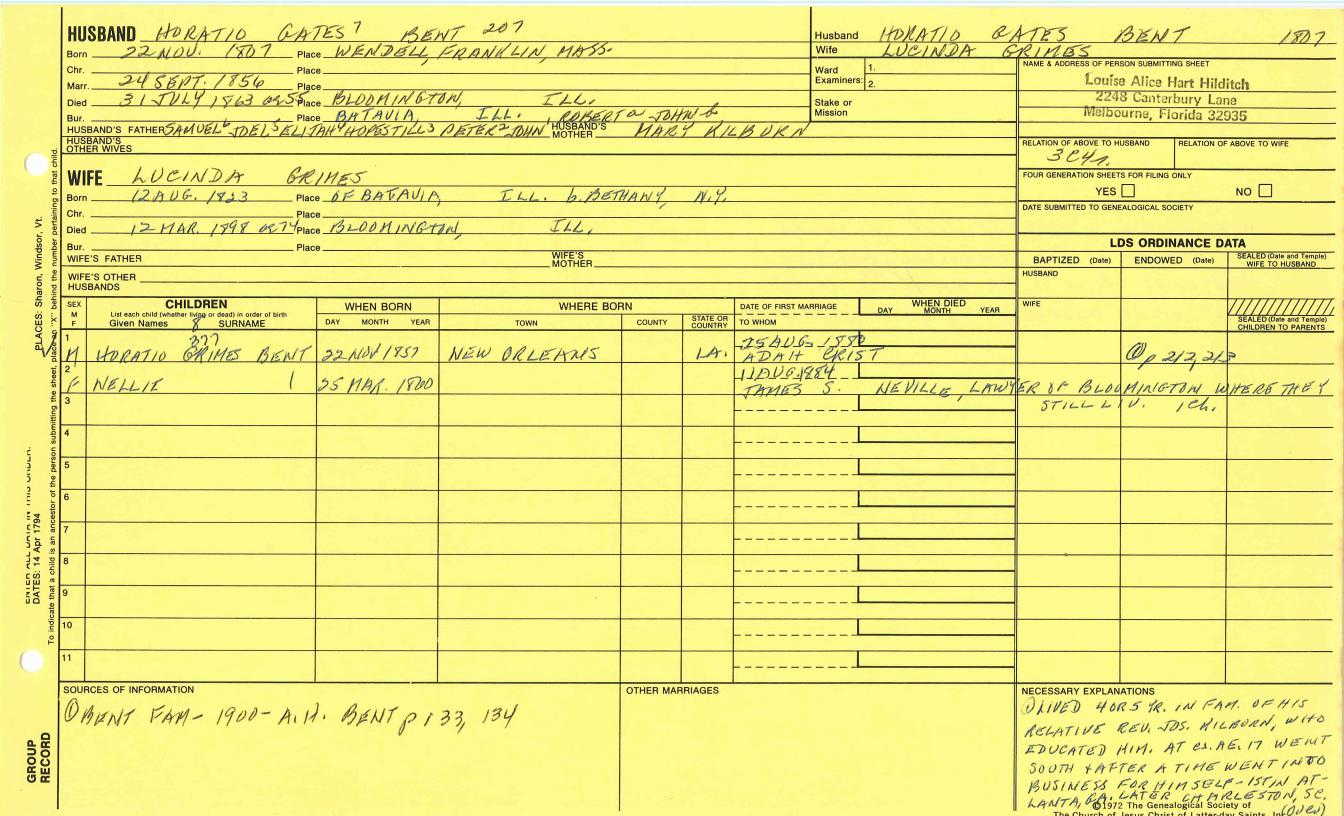 HUSBAND HORATIO GATES 7 BENT 207
Born 22 NOV. 1807 Place WENDELL, FRANKLIN, MASS.
Chr. Place
Marr. 24 SEPT. 1856 Place
Died 31 JULY 1863 ae 55 Place BLOOMINGTON, ILL.
Bur. Place BATAVIA, ILL.
HUSBAND'S FATHER SAMUEL6 JOEL5 ELIJAH4 HOPESTILL3 PETER2 JOHN ROBERT JOHN
HUSBAND'S MOTHER MARY KILBURN
HUSBAND'S OTHER WIVES
WIFE LUCINDA GRIMES
Born 12 AUG. 1823 Place OF BATAVIA, ILL. b. BETHANY, N.Y.
Chr. Place
Died 12 MAR. 1898 ae 74 Place BLOOMINGTON, ILL.
Bur. Place
WIFE'S FATHER
WIFE'S MOTHER
WIFE'S OTHER HUSBANDS
Husband HORATIO GATES BENT 1807
Wife LUCINDA GRIMES
Ward Examiners: 1.
2.
Stake or Mission
NAME & ADDRESS OF PERSON SUBMITTING SHEET
Louise Alice Hart Hilditch
2248 Canterbury Lane
Melbourne, Florida 32935
RELATION OF ABOVE TO HUSBAND RELATION OF ABOVE TO WIFE
3C4r.
FOUR GENERATION SHEETS FOR FILING ONLY
YES NO
DATE SUBMITTED TO GENEALOGICAL SOCIETY
LDS ORDINANCE DATA
BAPTIZED (Date) ENDOWED (Date) SEALED (Date and Temple) WIFE TO HUSBAND
HUSBAND
WIFE
SEALED (Date and Temple) CHILDREN TO PARENTS
SEX M F
CHILDREN
List each child (whether living or dead) in order of birth
Given Names 8 SURNAME
WHEN BORN
DAY MONTH YEAR
WHERE BORN
TOWN COUNTY STATE OR COUNTRY
DATE OF FIRST MARRIAGE
TO WHOM
WHEN DIED
DAY MONTH YEAR
1 377 25 AUG. 1880
M HORATIO GRIMES BENT 22 NOV 1857 NEW ORLEANS LA. ADAH CRIST ① p 212, 213
2 11 AUG 1884
F NELLIE 1 25 MAR. 1860 JAMES S. NEVILLE, LAWYER OF BLOOMINGTON WHERE THEY
3 STILL LIV. 1 Ch.
4
5
6
7
8
9
10
11
SOURCES OF INFORMATION
① BENT FAM- 1900- A.H. BENT p 133, 134
OTHER MARRIAGES
NECESSARY EXPLANATIONS
① LIVED 4 OR 5 YR. IN FAM. OF HIS
RELATIVE REV. JOS. KILBURN, WHO
EDUCATED HIM. AT ca. AE. 17 WENT
SOUTH & AFTER A TIME WENT INTO
BUSINESS FOR HIMSELF- 1ST IN AT-
LANTA, GA. LATER CHARLESTON, SC.
(OVER)
©1972 The Genealogical Society of
The Church of Jesus Christ of Latter-day Saints, In
PLACES: Sharon, Windsor, Vt.
ENTER ALL DATA IN THIS ORDER:
DATES: 14 Apr 1794
To indicate that a child is an ancestor of the person submitting the sheet, place an "X" behind the number pertaining to that child.
GROUP RECORD